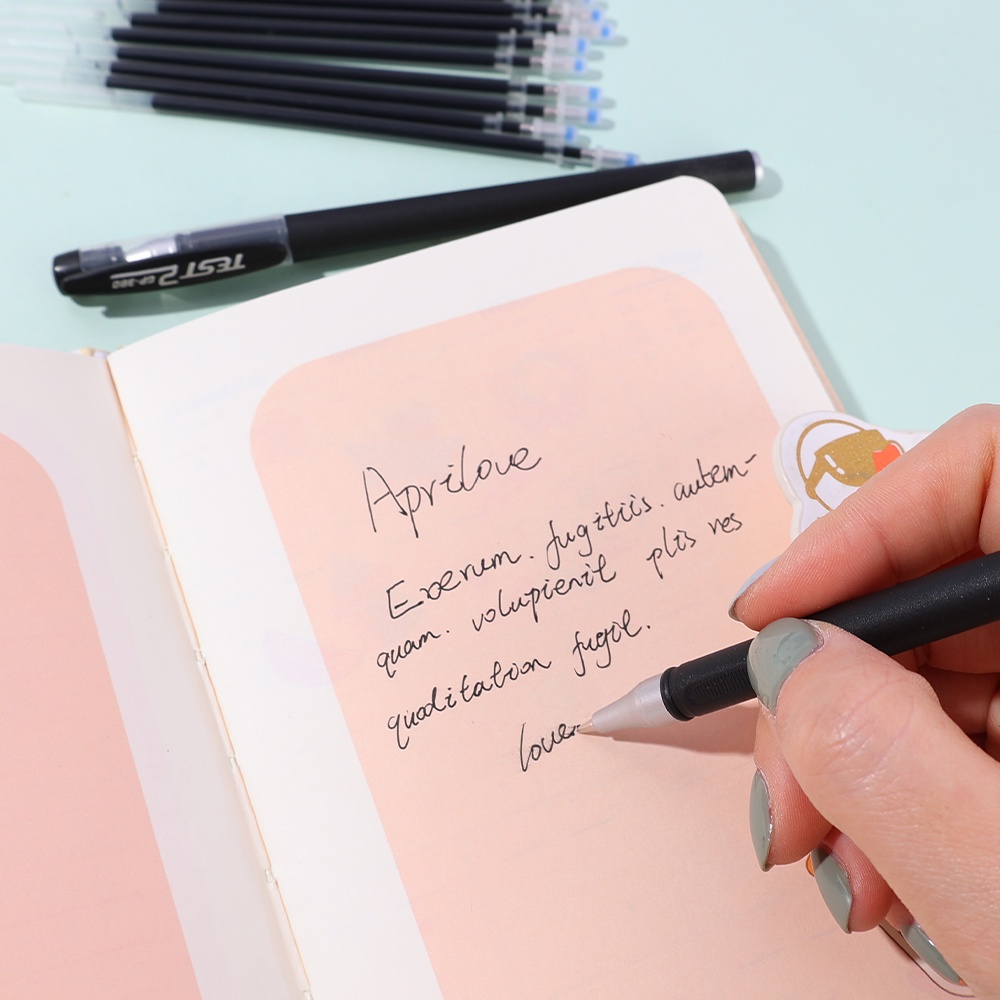 TEST2 GP-380
Aprilove
Exerum. fugitiis. autem-
quam. volupienit plis res
quoditation fugit.
lover